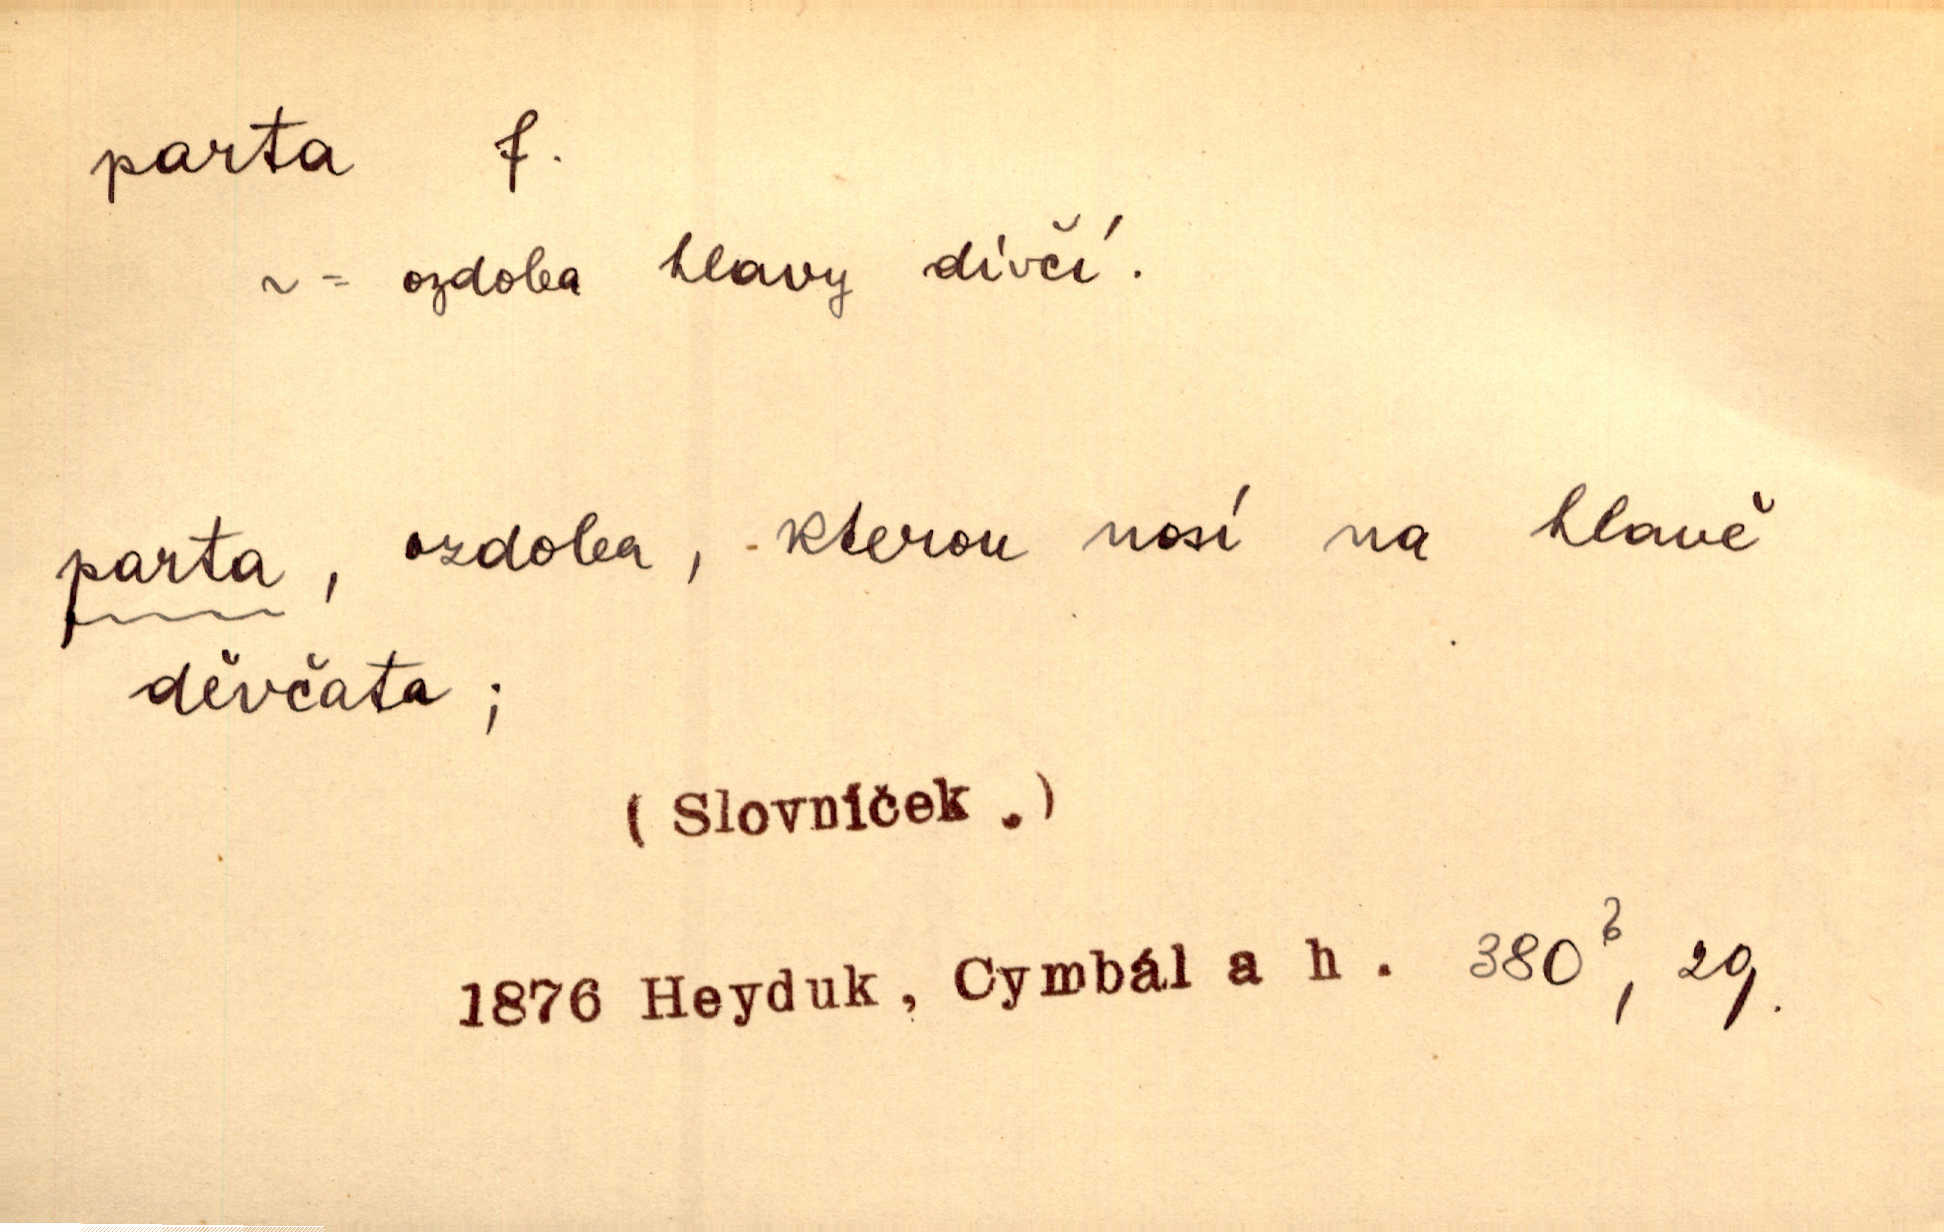 parta f.
~ = ozdoba hlavy dívčí.
parta, ozdoba, kterou nosí na hlavě
děvčata;
(Slovníček.)
1876 Heyduk, Cymbál a h. 380, 29.